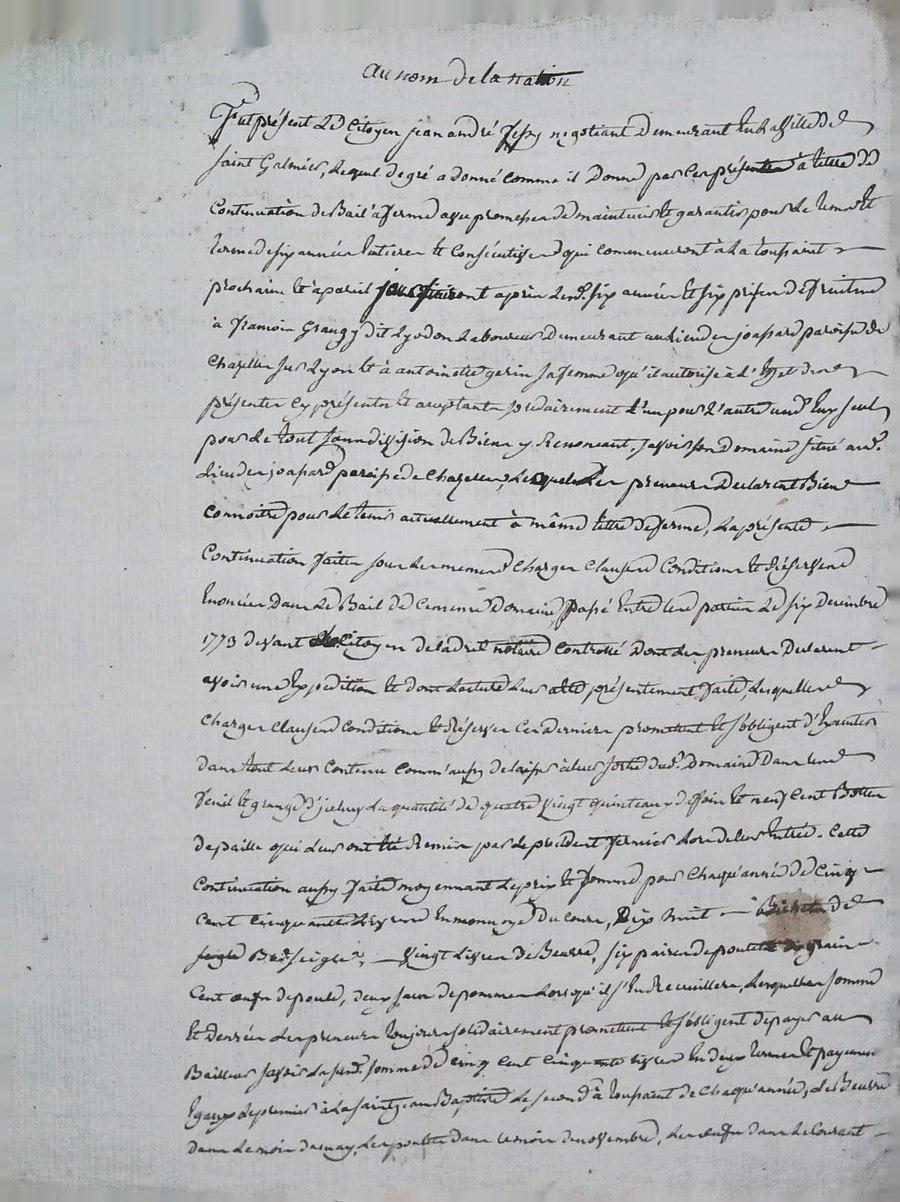 au nom de la nation
Fut présent Le Citoyen jean andré negotiant Demeurant En la Ville De
saint Galmier, Lequel de gré a donné Comme il Donne par Ces présentes à titre de
Continuation de Bail à ferme avec promesse de maintenir et garantir pour Le tems et
terme de six années Entieres et Consécutives qui commenceront à La toussaint
prochaine et à pareil jour finiront après Lesd. six années et six prises de fruits
à francois Grangy dit Lyodon Laboureur Demeurant au Lieu de joapard paroisse de
Chazelles sur Lyon et à antoinette gerin sa femme qu'il autorise à L'Effet des
présentes Cy présents et acceptants solidairement L'un pour L'autre un d'Eux seul
pour Le tout sans division de Biens y Renoncant, savoir son Domaine situé aud.
Lieu de joapard paroisse de Chazelles, Lequel Les preneurs Declarent Bien
Connoitre pour Le tenir actuellement à même titre de ferme, La présente
Continuation faite sous Les mêmes Charges Clauses Conditions et Réserves
Enoncées Dans Le Bail de Ce même Domaine, passé Entre Les parties Le six Decembre
1773 devant Le Citoyen notaire Controllé Dont Les preneurs Declarent
avoir une Expédition et dont Lecture Leur a été présentement faite, Lesquelles
Charges Clauses Conditions et Réserves Ces Derniers promettent et s'obligent d'Exécuter
dans tout Leur Contenu Comm'aussy de Laisser à Leur sortie dud. Domaine Dans Les
fenil et grange d'icelluy La quantité de quatre Vingt quinteaux de foin et neuf Cent Bottes
de paille qui Leur ont été Remis par Le précédent fermier Lors de Leur Entrée. Cette
Continuation aussy faite moyennant Le prix et somme pour Chaqu'année de Cinq
Cent Cinquante Livres En monnoye du Cours, Dix huit Bichets de
seigle Vingt Livres de Beurre, six paires de poulets de grain
Cent œufs de poule, deux sacs de pommes Lorsqu'il s'En Recueillera, Lesquelles somme
et denrées Les preneurs toujours solidairement promettent et s'obligent de payer au
Bailleur savoir La susd. somme de Cinq Cent Cinquante Livres En deux termes et payements
Egaux Le premier à La saint jean Baptiste Le second à toussaint de Chaqu'année, Le Beurre
dans Le mois de may, Les poulets dans Le mois de novembre, Les œufs dans Le Courant